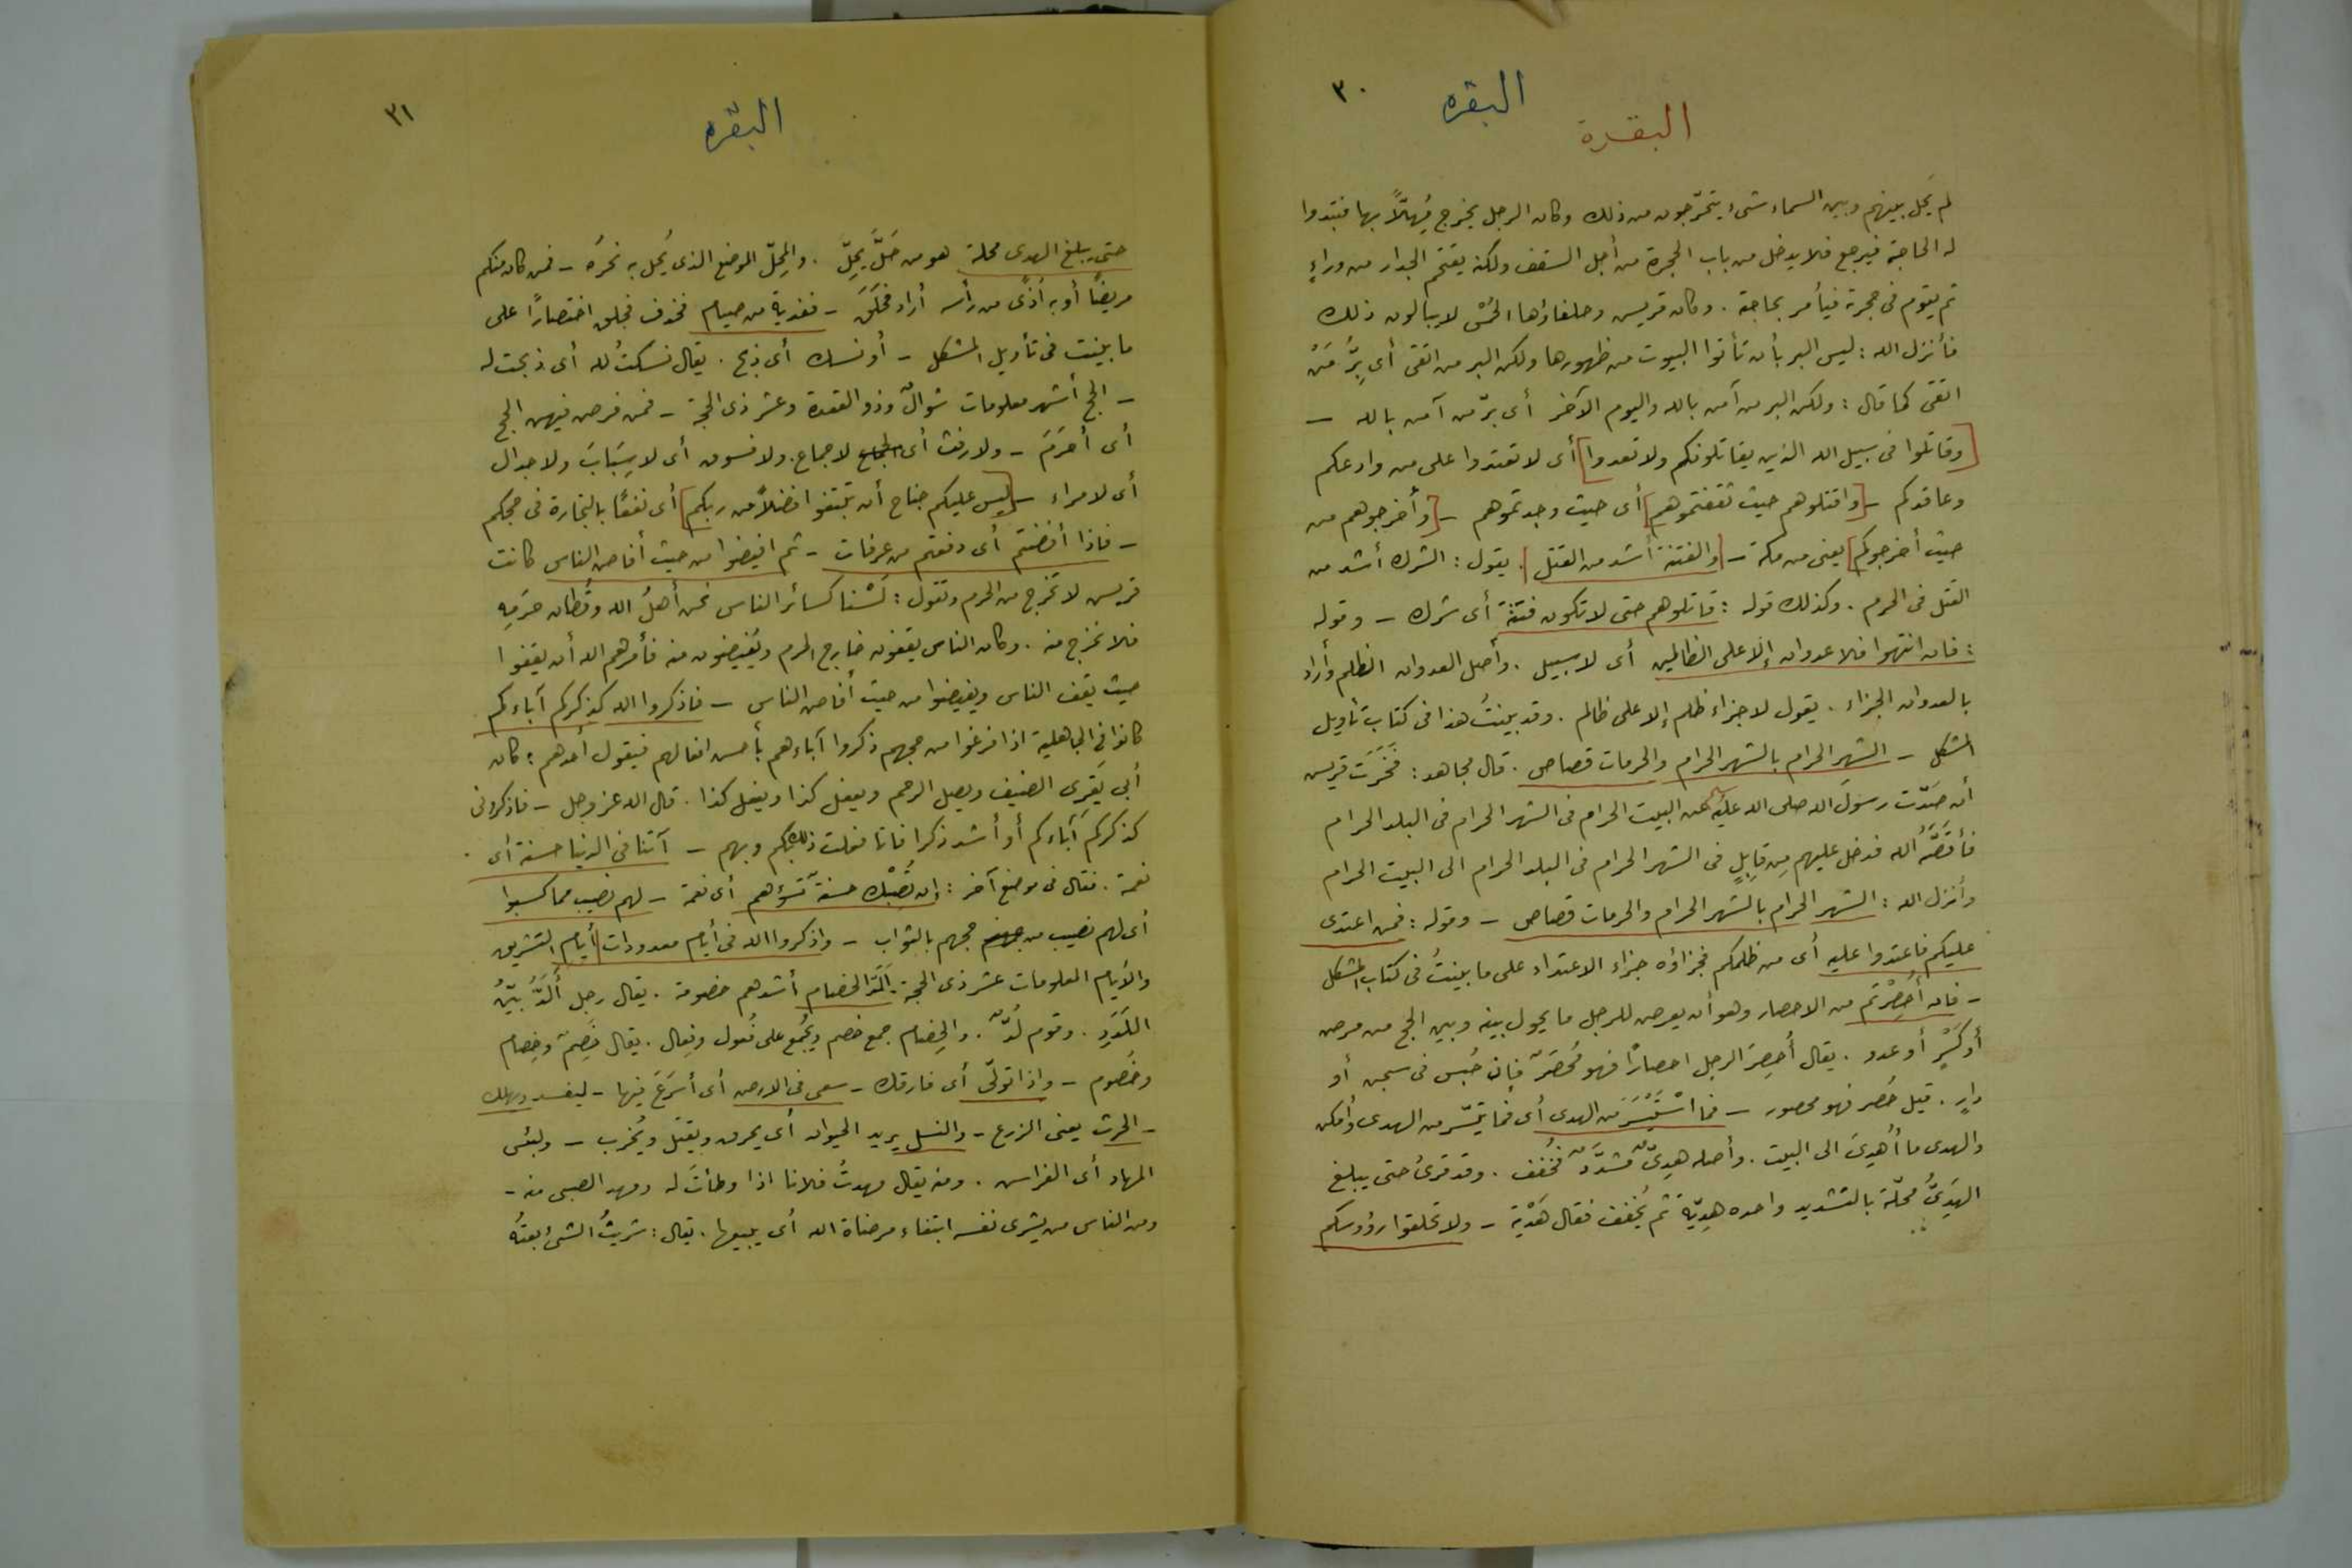 ٣٠
البقره
البقرة
لم يَحُل بينهم وبين السماء شىء يتحرّجون من ذلك وكان الرجل يخرج مُهِلاًّ بها فتبدوا
له الحاجة فيرجع فلا يدخل من باب الحجرة من أجل السقف ولكنه يقتحم الجدار من وراءٍ
ثم يقوم فى حجرته فيأمر بحاجته . وكان قريس وحلفاؤها الحُمْس لا يبالون ذلك
فأنزل الله : ليس البر بأن تأتوا البيوت من ظهورها ولكن البر من اتقى أى بِرُّ مَنْ
اتقى كما قال : ولكن البر من آمن بالله واليوم الآخر أى برّ من آمن بالله –
[وقاتلوا فى سبيل الله الذين يقاتلونكم ولا تعدوا] أى لا تعتدوا على من وادعكم
وعاقدكم – [واقتلوهم حيث ثقفتموهم] أى حيث وجدتموهم – [وأخرجوهم من
حيث أخرجوكم] يعنى من مكة – [والفتنة أشد من القتل] . يقول : الشرك أشد من
القتل فى الحرم . وكذلك قوله : قاتلوهم حتى لا تكون فتنة أى شرك – وقوله
: فان انتهوا فلا عدوان إلا على الظالمين أى لا سبيل . وأصل العدوان الظلم وأراد
بالعدوان الجزاء . يقول لا جزاء ظلم إلا على ظالم . وقد بينتُ هذا فى كتاب تأويل
المشكل – الشهر الحرام بالشهر الحرام والحرمات قصاص . قال مجاهد : فَخَرَت قريس
أن صَدّت رسولَ الله صلى الله عليه عن البيت الحرام فى الشهر الحرام فى البلد الحرام
فأقصَّهُ الله فدخل عليهم مِن قابِلٍ فى الشهر الحرام فى البلد الحرام الى البيت الحرام
وأنزل الله : الشهر الحرام بالشهر الحرام والحرمات قصاص – وقوله : فمن اعتدى
عليكم فاعتدوا عليه أى من ظلمكم فجزاؤه جزاء الاعتداء على ما بينتُ فى كتاب المشكل
– فان أُحْصِرْتم من الاحصار وهو أن يعرض للرجل ما يحول بينه وبين الحج من مرض
أو كَسْرٍ أو عدو . يقال أُحصِرَ الرجل احصارًا فهو مُحْصَرٌ فإن حُبس فى سجن أو
دارٍ . قيل حُصر فهو محصور – فما اسْتَيْسَرَ من الهدى أى فما تيسّر من الهدى وأمكن
والهدى ما أُهْدِىَ الى البيت . وأصله هَدِىٌّ مُشدَّدٌ فخُفف . وقد قرئ حتى يبلغ
الهَدِىُّ محلّه بالتشديد واحده هِدِيّة ثم يُخفف فقال هَدْية – ولا تحلقوا رؤوسكم
٣١
البقره
حتى يبلغ الهدى محله هو من حَلَّ يَحِلّ . والمِحِلّ الموضع الذى يَحُل به نحرُه – فمن كان منكم
مريضًا أو به أذًى من رأسه أراد فحَلَقَ – ففدية من صيام فحذف فحلق اختصارًا على
ما بينت فى تأويل المشكل – أو نسك أى ذبح . يقال نسكتُ لله أى ذبحت له
– الحج أشهر معلومات شوالٌ وذو القعدة وعشر ذى الحجة – فمن فرض فيهن الحج
أى أحْرَمَ – ولا رفث أى لا جماع . ولا فسوق أى لا سِبَابَ ولا جدال
أى لا مراء – [ليس عليكم جناح أن تبتغوا فضلاً من ربكم] أى نفعًا بالتجارة فى حجكم
– فاذا أفضتم أى دفعتم من عرفات – ثم افيضوا من حيث أفاض الناس كانت
قريس لا تخرج من الحرم وتقول : لَسْنا كسائر الناس نحن أهلُ الله وقُطان حَرَمِه
فلا نخرج منه . وكان الناس يقفون خارج الحرم ويُفيضون منه فأمرهم الله أن يقفوا
حيث يقف الناس ويفيضوا من حيث أفاض الناس – فاذكروا الله كذكركم آباءكم
كانوا فى الجاهلية اذا فرغوا من حجهم ذكروا آباءهم بأحسن افعالهم فيقول أحدهم : كان
أبى يَقرِى الضيف ويصل الرحم ويفعل كذا ويفعل كذا . قال الله عز وجل – فاذكرونى
كذكركم آباءكم أو أشد ذكرا فانا فعلت ذلك بكم وبهم – آتنا فى الدنيا حسنة أى
نعمة . فقال فى موضع آخر : إن تُصِبْك حسنةٌ تَسُؤهم أى نعمة – لهم نصيب مما كسبوا
أى لهم نصيب من حجهم بالثواب – واذكروا الله فى أيام معدودات أيام التشريق
والأيام المعلومات عشر ذى الحجة . ألَدّ الخصام أشدهم خصومة . يقال رجل ألَدُّ بيّنُ
اللَدَدِ . وقوم لُدٌّ . والخِصام جمع خصم ويُجمَع على فُعول وفِعال . يقال خَصِمَ وخِصام
وخُصوم – واذا تولّى أى فارقك – سعى فى الارض أى أسرَعَ فيها – ليفسد ويهلك
– الحرث يعنى الزرع – والنسل يريد الحيوان أى يحرق ويقتل ويُخرب – ولبئس
المهاد أى الفراس . ومنه يقال مهدتُ فلانا اذا وطأتَ له ومهد الصبى منه –
ومن الناس من يشرى نفسه ابتغاء مرضاة الله أى يبيعها . يقال : شريتُ الشىءَ بعتُه